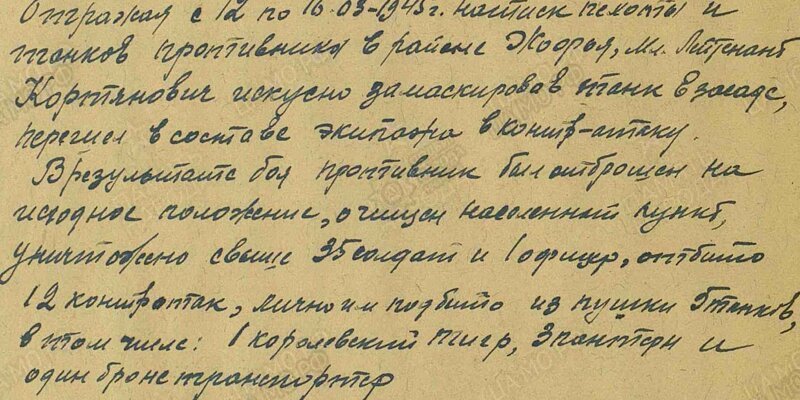 Отражая с 12 по 16.03-1945г. натиск пехоты и
танков противника в районе Жофия, мл. Лейтенант
Кортянович искусно замаскировав танк в засаде,
перешел в составе экипажа в контр-атаку.
В результате боя противник был отброшен на
исходное положение, очищен населенный пункт,
уничтожено свыше 35 солдат и 1 офицер, отбито
12 контратак, лично им подбито из пушки танков,
в том числе: 1 королевский тигр, 3 пантеры и
один бронетранспортер